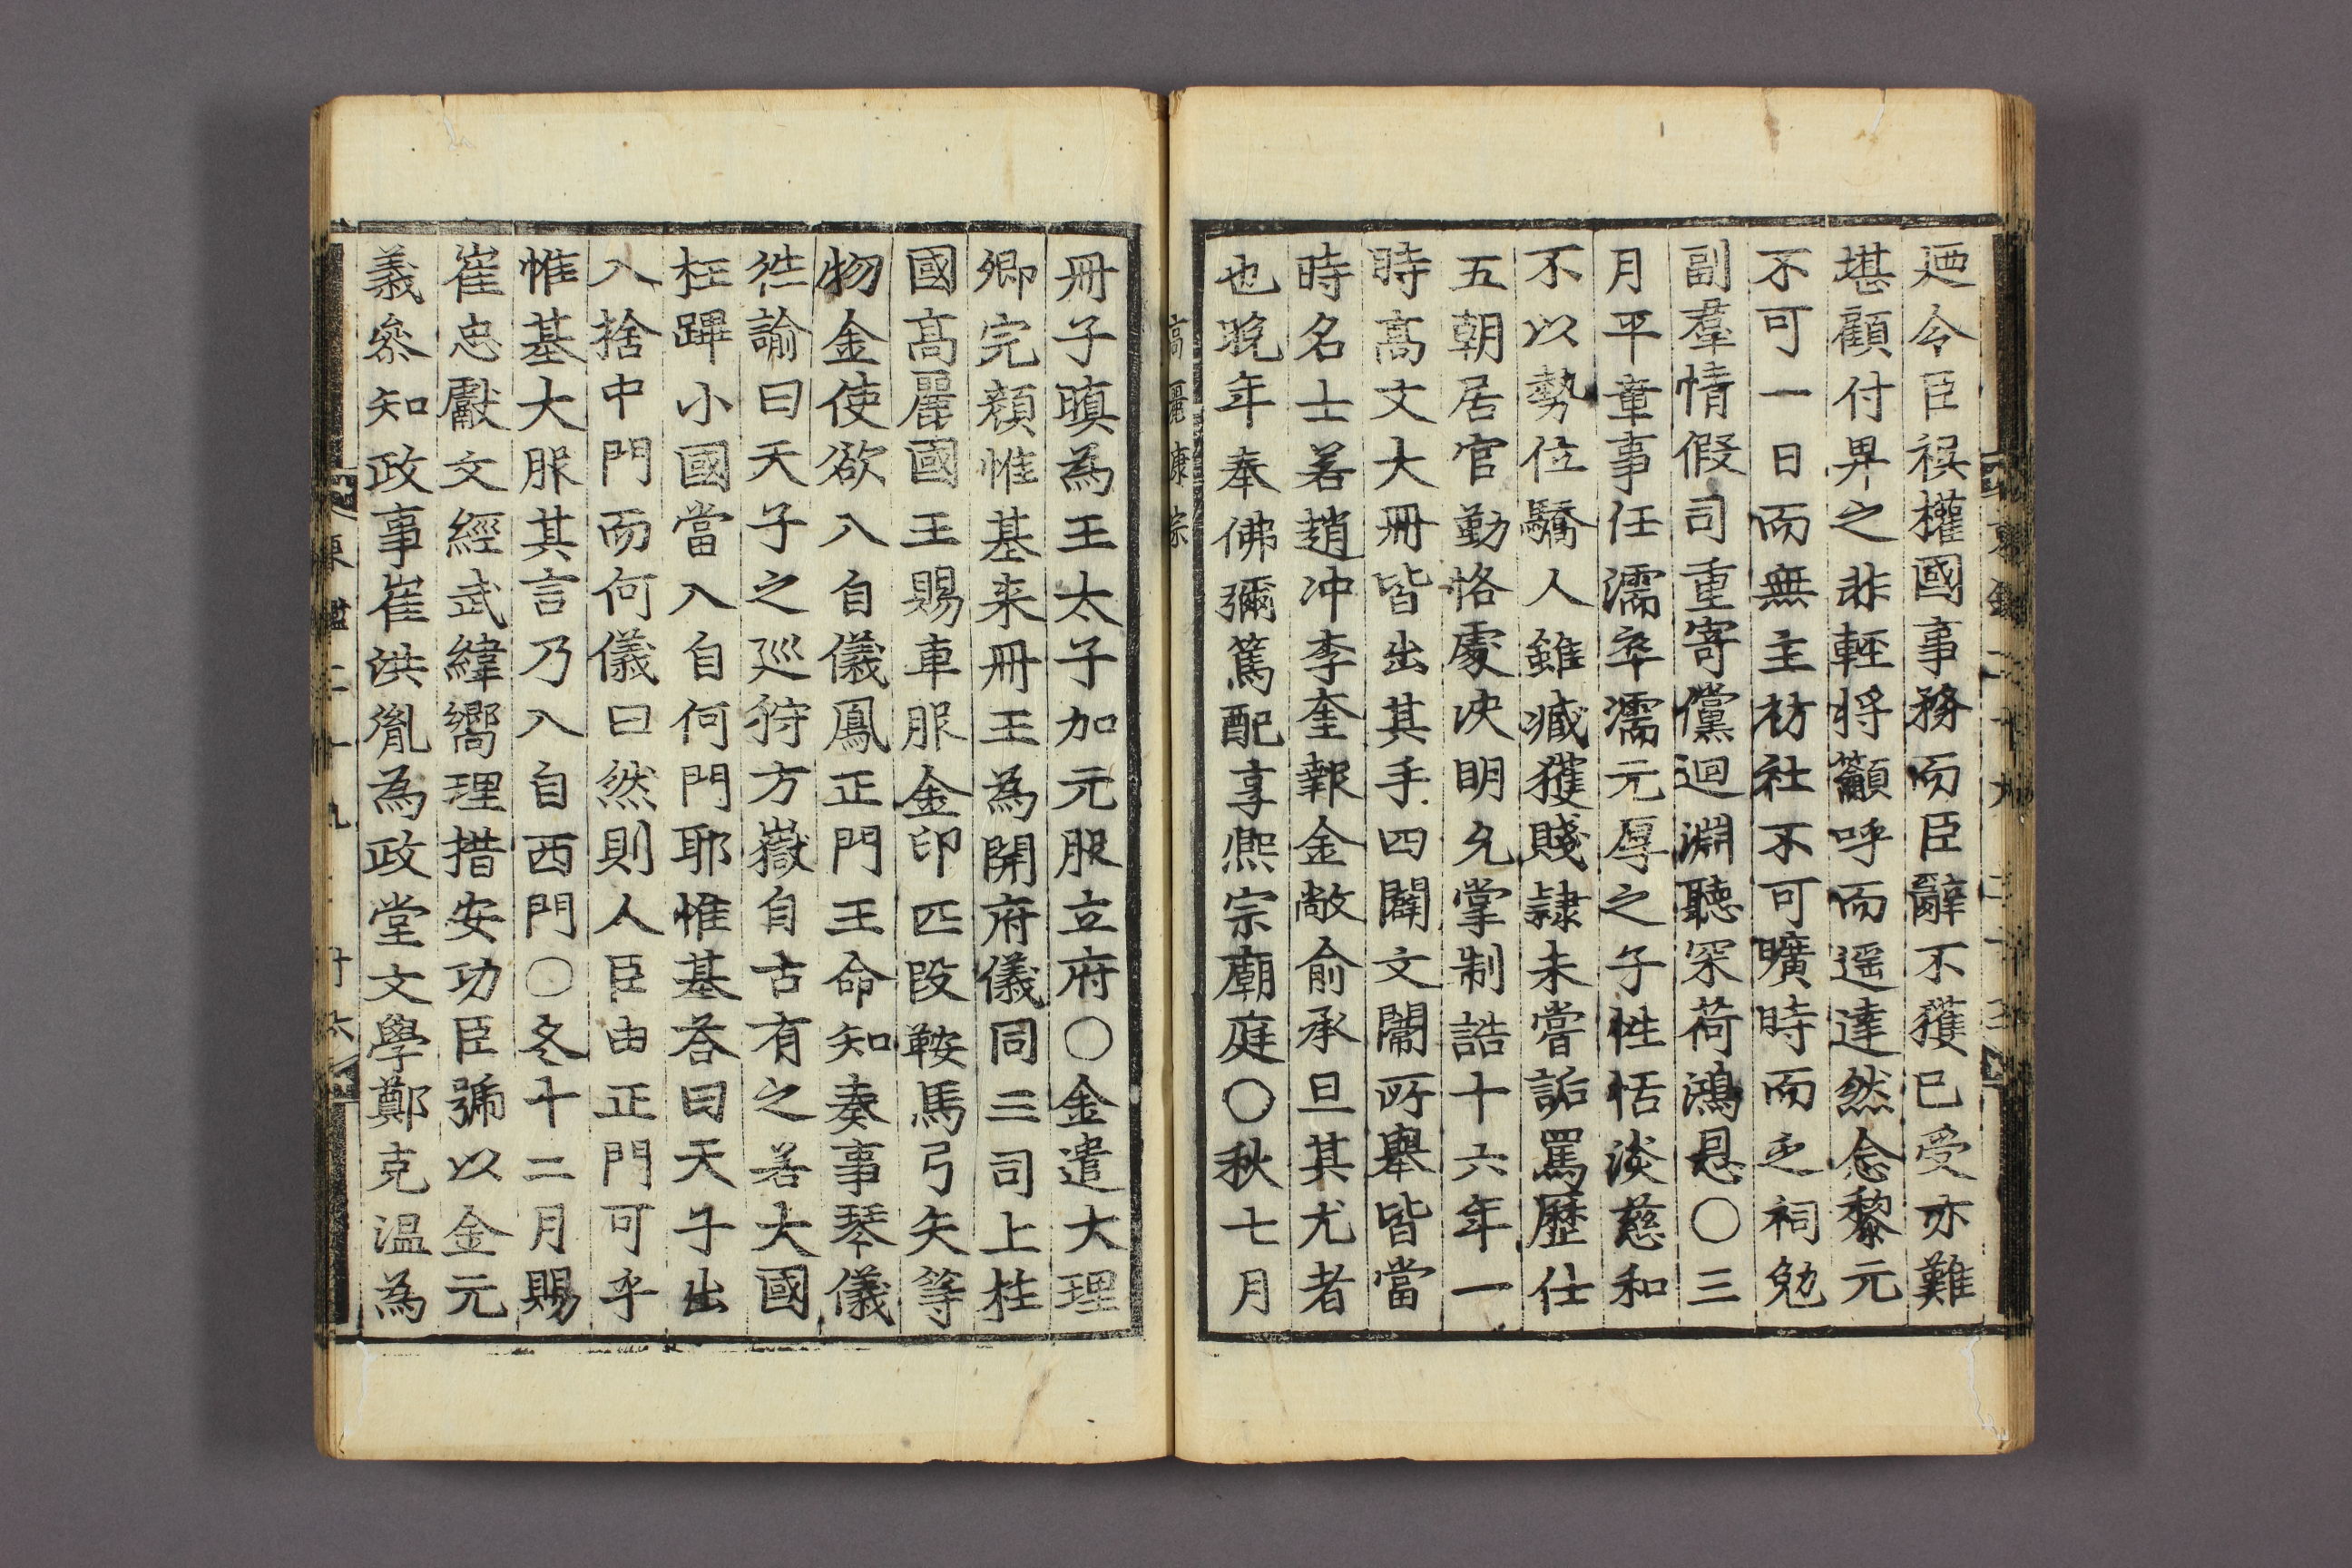 廼令臣祦權國事務而臣辭不獲已受亦難
堪顧付畀之非輕将籲呼而遥達然念黎元
不可一日而無主枋社不可曠時而乏祠勉
副羣情假司重寄儻迴淵聽罙荷鴻恩〇三
月平章事任濡卒濡元厚之子性恬淡慈和
不以勢位驕人雖臧獲賤隷未嘗詬罵歷仕
五朝居官勤恪處决明允掌制誥十六年一
時髙文大冊皆出其手四闢文闈所舉皆當
時名士若趙冲李奎報金敞俞承旦其尤者
也晩年奉佛彌篤配享熈宗廟庭〇秋七月
高麗康宗
冊子瞋為王太子加元服立府〇金遣大理
卿完顔惟基来冊王為開府儀同三司上柱
國髙麗國王賜車服金印匹段鞍馬弓矢等
物金使欲入自儀鳳正門王命知奏事琴儀
徃諭曰天子之廵狩方嶽自古有之若大國
枉蹕小國當入自何門耶惟基荅曰天子出
入捨中門而何儀曰然則人臣由正門可乎
惟基大服其言乃入自西門〇冬十二月賜
崔忠獻文經武緯嚮理措安功臣號以金元
義叅知政事崔洪胤為政堂文學鄭克温為